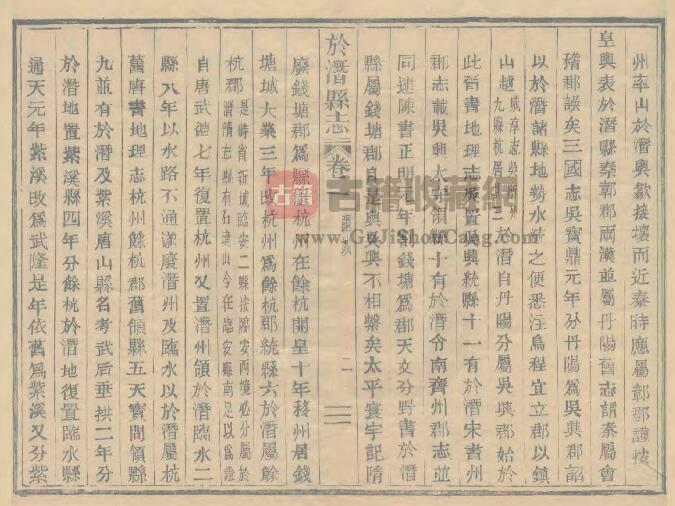 州率山於潛與歙接壤而近秦時應屬鄣郡謹按
皇輿表於潛縣秦鄣郡兩漢並屬丹陽舊志謂秦屬會
稽郡誤矣三國志吳寶鼎元年分丹陽爲吳興郡詔
以於潛諸縣地勢水流之便悉注烏程宜立郡以鎮
山越
咸淳志
九縣
於潛自丹陽分屬吳興郡始於
此晉書地理志吳置吳興統縣十一有於潛宋書州
郡志載吳興太守領縣十有於潛令南齊州郡志並
同逮陳書正明元年割錢塘爲郡天文分野書於潛
縣屬錢塘郡自是與吳興不相繫矣太平寰宇記隋
於潛縣志
卷一
二
廢錢塘郡爲縣領杭州在餘杭開皇十年移州居錢
塘城大業三年改杭州爲餘杭郡統縣六於潛屬餘
杭郡
是時省新城臨安二縣按臨安兩境必分屬於
潛隋志縣有石鏡山今在臨安縣南足以爲證
自唐武德七年復置杭州又置潛州領於潛臨水二
縣八年以水路不通遂廢潛州及臨水以於潛屬杭
舊唐書地理志杭州餘杭郡舊領縣五天寶間領縣
九並有於潛及紫溪唐山縣名考武后垂拱二年分
於潛地置紫溪縣四年分餘杭於潛地復置臨水縣
通天元年紫溪改爲武隆是年依舊爲紫溪又分紫
古籍收藏網
www.GuJiShouCang.com
古籍